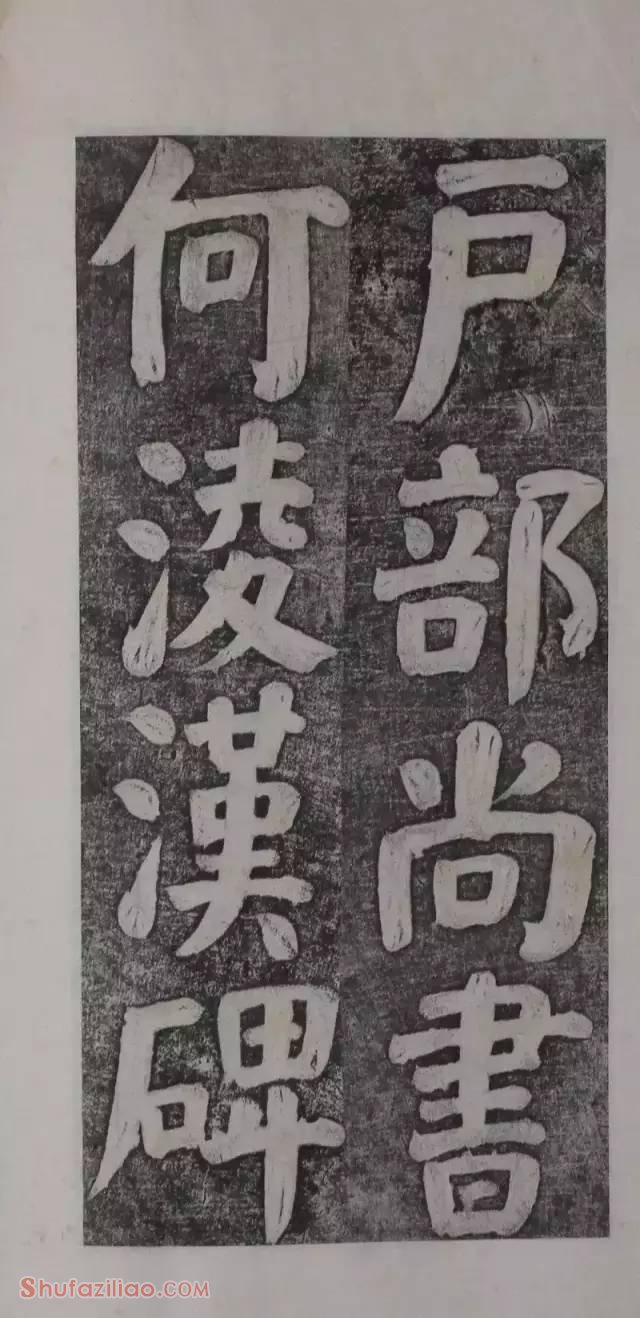 户部尚書
何淩漢碑
Shufaziliao.com